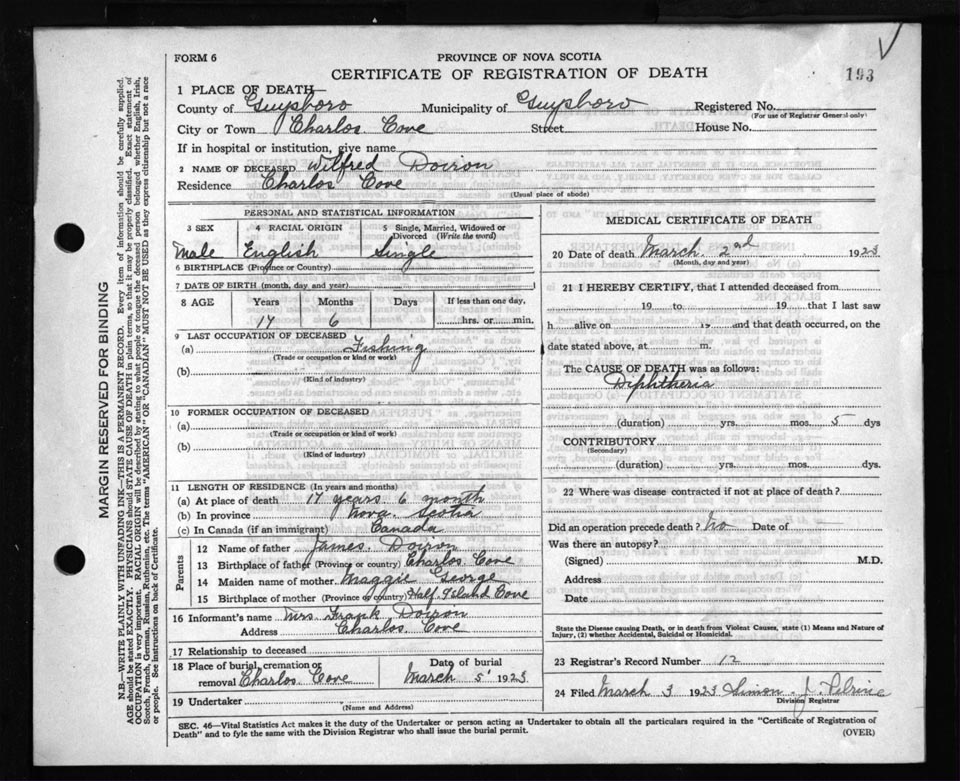 FORM 6
PROVINCE OF NOVA SCOTIA
CERTIFICATE OF REGISTRATION OF DEATH
193
1 PLACE OF DEATH—
County of Guysboro Municipality of Guysboro Registered No.
(For use of Registrar General only)
City or Town Charlos Cove Street House No.
If in hospital or institution, give name
2 NAME OF DECEASED Wilfred Doiron
Residence Charlos Cove
(Usual place of abode)
PERSONAL AND STATISTICAL INFORMATION
3 SEX 4 RACIAL ORIGIN 5 Single, Married, Widowed or Divorced (Write the word)
Male English Single
6 BIRTHPLACE (Province or Country)
7 DATE OF BIRTH (month, day and year)
8 AGE Years Months Days If less than one day,
17 6 hrs. or min.
9 LAST OCCUPATION OF DECEASED
(a) Fishing
(Trade or occupation or kind or work)
(b)
(Kind of industry)
10 FORMER OCCUPATION OF DECEASED
(a)
(Trade or occupation or kind of work)
(b)
(Kind of industry)
11 LENGTH OF RESIDENCE (In years and months)
(a) At place of death 17 years 6 month
(b) In province Nova Scotia
(c) In Canada (if an immigrant) Canada
Parents
12 Name of father James Doiron
13 Birthplace of father (Province or country) Charlos Cove
14 Maiden name of mother Maggie George
15 Birthplace of mother (Province or country) Half Island Cove
16 Informant's name Mrs. Frank Doiron
Address Charlos Cove
17 Relationship to deceased
18 Place of burial, cremation or removal Charlos Cove
Date of burial
March 5 1923
19 Undertaker
(Name and Address)
MEDICAL CERTIFICATE OF DEATH
20 Date of death March 2nd 1923
(Month, day and year)
21 I HEREBY CERTIFY, that I attended deceased from
19 to 19 that I last saw
h alive on 19 and that death occurred, on the
date stated above, at m.
The CAUSE OF DEATH was as follows:
Diphtheria
(duration) yrs. mos. 5 dys
CONTRIBUTORY
(Secondary)
(duration) yrs. mos. dys.
22 Where was disease contracted if not at place of death?
Did an operation precede death? No Date of
Was there an autopsy?
(Signed) M.D.
Address
Date
State the Disease causing Death, or in death from Violent Causes, state (1) Means and Nature of
Injury, (2) whether Accidental, Suicidal or Homicidal.
23 Registrar's Record Number 12
24 Filed March 3 1923 Simon J. Pelrine
Division Registrar
SEC. 46—Vital Statistics Act makes it the duty of the Undertaker or person acting as Undertaker to obtain all the particulars required in the "Certificate of Registration of
Death" and to fyle the same with the Division Registrar who shall issue the burial permit.
(OVER)
MARGIN RESERVED FOR BINDING
N.B.—WRITE PLAINLY WITH UNFADING INK—THIS IS A PERMANENT RECORD. Every item of information should be carefully supplied.
AGE should be stated EXACTLY. PHYSICIANS should STATE CAUSE OF DEATH in plain terms, so that it may be properly classified. Exact statement of
OCCUPATION is very important. RACIAL ORIGIN will be described by stating to what people or tongue the deceased person belonged whether English, Irish,
Scotch, French, German, Russian, Ruthenian, etc. The terms "AMERICAN" OR "CANADIAN" MUST NOT BE USED as they express citizenship but not a race
or people. See instructions on back of Certificate.